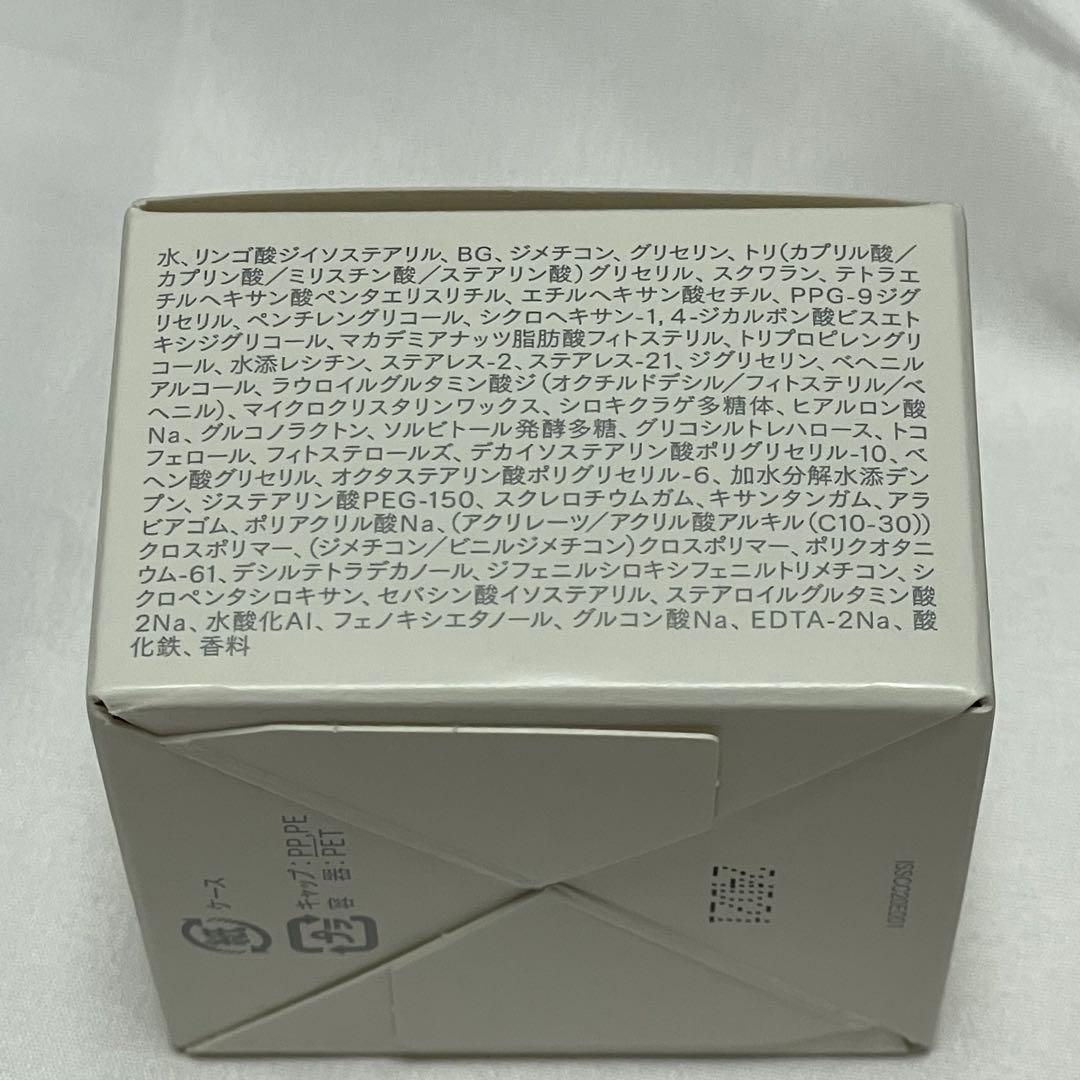 水、リンゴ酸ジイソステアリル、BG、ジメチコン、グリセリン、トリ(カプリル酸／
カプリン酸／ミリスチン酸／ステアリン酸)グリセリル、スクワラン、テトラエ
チルヘキサン酸ペンタエリスリチル、エチルヘキサン酸セチル、PPG-9ジグ
リセリル、ペンチレングリコール、シクロヘキサン-1,4-ジカルボン酸ビスエト
キシジグリコール、マカデミアナッツ脂肪酸フィトステリル、トリプロピレングリ
コール、水添レシチン、ステアレス-2、ステアレス-21、ジグリセリン、ベヘニル
アルコール、ラウロイルグルタミン酸ジ(オクチルドデシル／フィトステリル／ベ
ヘニル)、マイクロクリスタリンワックス、シロキクラゲ多糖体、ヒアルロン酸
Na、グルコノラクトン、ソルビトール発酵多糖、グリコシルトレハロース、トコ
フェロール、フィトステロールズ、デカイソステアリン酸ポリグリセリル-10、ベ
ヘン酸グリセリル、オクタステアリン酸ポリグリセリル-6、加水分解水添デン
プン、ジステアリン酸PEG-150、スクレロチウムガム、キサンタンガム、アラ
ビアゴム、ポリアクリル酸Na、(アクリレーツ／アクリル酸アルキル(C10-30))
クロスポリマー、(ジメチコン／ビニルジメチコン)クロスポリマー、ポリクオタニ
ウム-61、デシルテトラデカノール、ジフェニルシロキシフェニルトリメチコン、シ
クロペンタシロキサン、セバシン酸イソステアリル、ステアロイルグルタミン酸
2Na、水酸化Al、フェノキシエタノール、グルコン酸Na、EDTA-2Na、酸
化鉄、香料
紙 ケース
プラ キャップ:PP,PE
容 器:PET